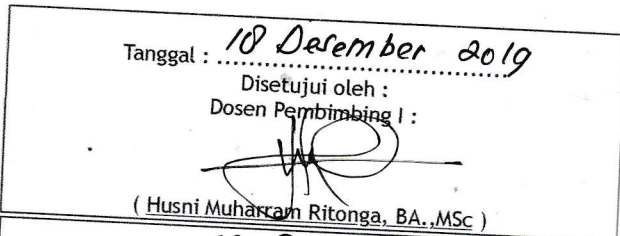 Tanggal : 18 Desember 2019
Disetujui oleh :
Dosen Pembimbing I :
( Husni Muharram Ritonga, BA.,MSc )